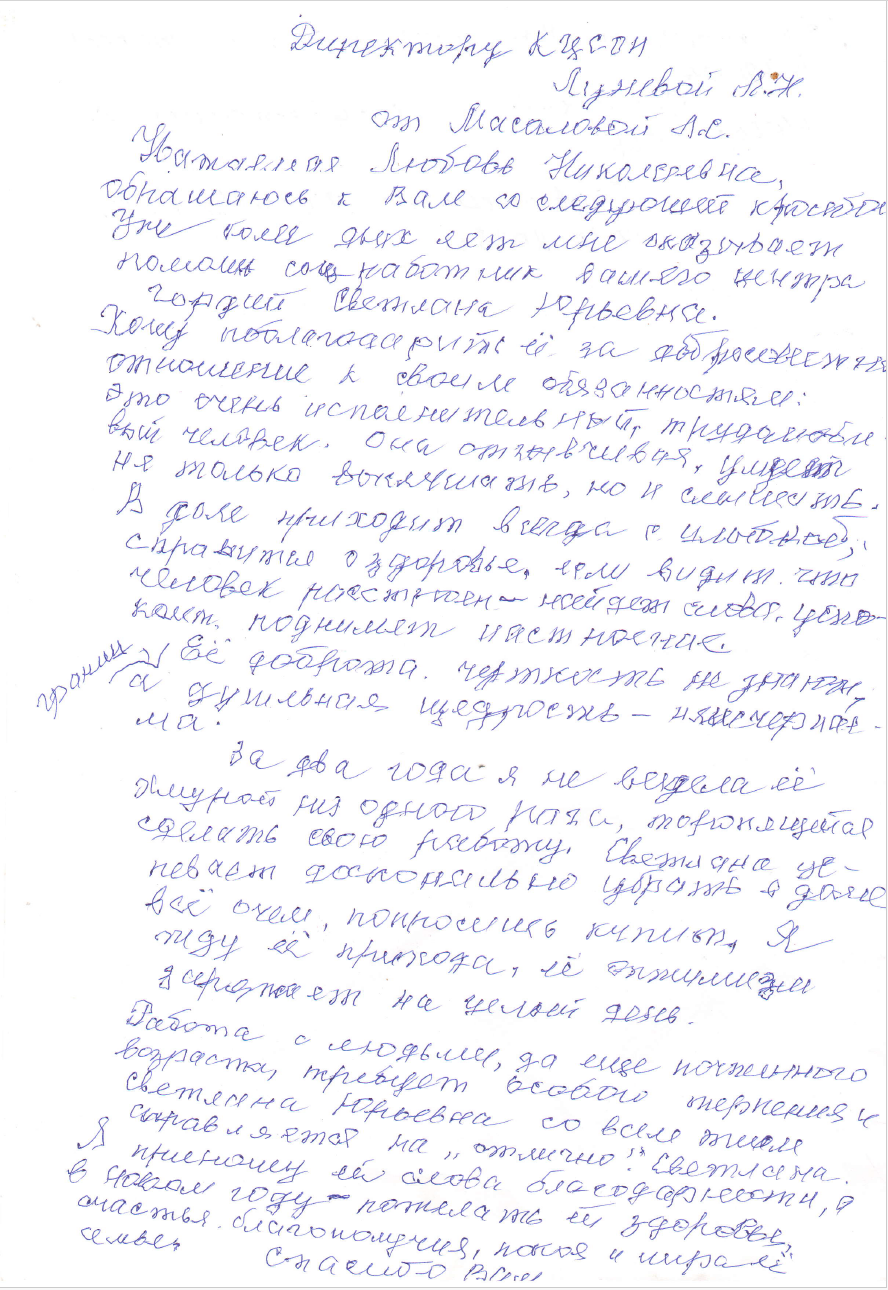 Директору КЦСОН
Лужевой Л.Н.
от Масаловой А.С.
Уважаемая Любовь Николаевна,
обращаюсь к Вам со следующей просьбой
Уже более двух лет мне оказывает
помощь соц-работник вашего центра
Гордий Светлана Юрьевна.
Хочу поблагодарить её за добросовестное
отношение к своим обязанностям:
это очень исполнительный, трудолюби-
вый человек. Она отзывчивая, умеет
не только выслушать, но и слышать.
В доме приходит всегда с улыбкой,
справится о здоровье, если видит что
человек расстроен – найдет слова, успо-
коит, поднимет настроение.
границ
Её доброта, чуткость не знают,
а душевная щедрость – неисчерпае-
ма.
За два года я не видела её
хмурой ни одного раза, торопящейся
сделать свою работу. Светлана ус-
певает досконально убрать в доме
всё
купить, Я
жду её прихода, её оптимизм
заряжает на целый день.
Работа с людьми, да еще почтенного
возраста, требует особого терпения и
Светлана Юрьевна со всем этим
справляется на „отлично". Светлана.
Я приношу ей слова благодарности, а
в новом году – пожелать ей здоровья,
счастья, благополучия, покоя и мира её
семье.
Спасибо